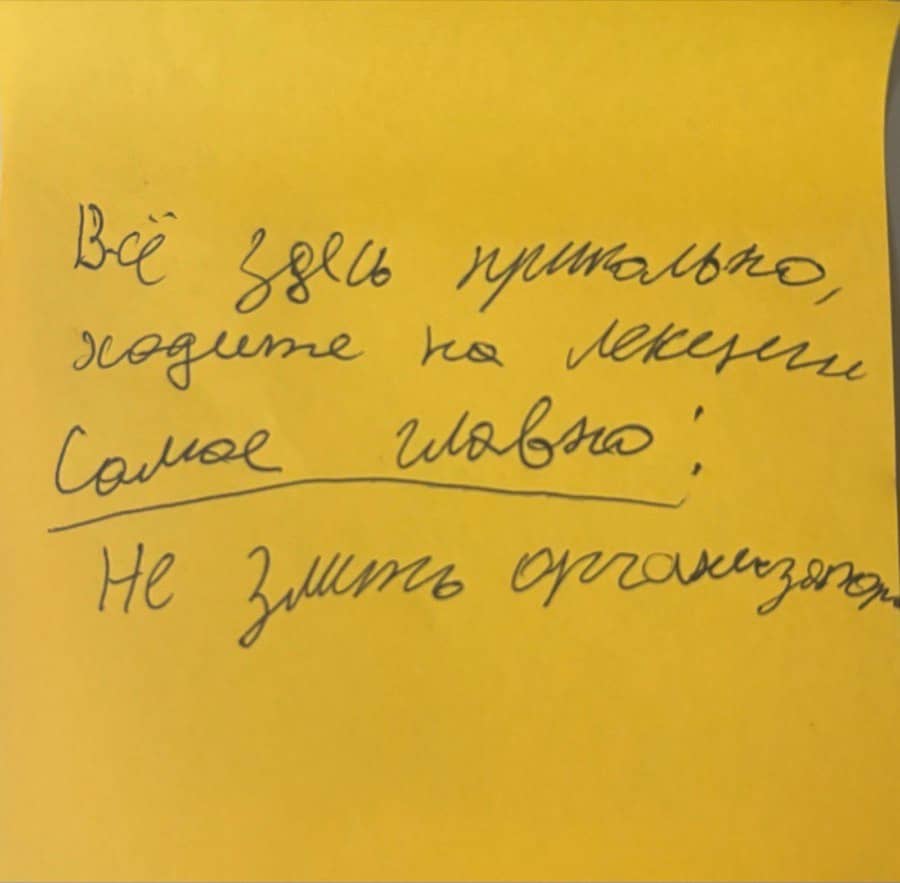 Всё здесь прикольно,
ходите на лекции
Самое главно:
Не злить организатор